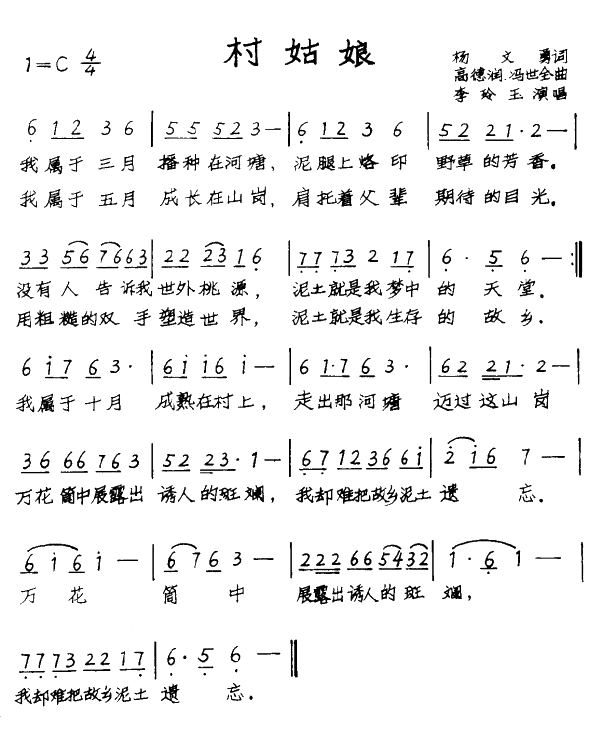 村姑娘
1=C 4/4
杨文勇词
高德润.冯世全曲
李玲玉演唱
6 12 3 6 | 55 55 23 — | 6 12 3 6 | 52 21 2 — |
我属于三月 播种在河塘, 泥腿上烙印 野草的芳香。
我属于五月 成长在山岗, 肩托着父辈 期待的目光。
33 56 7663 | 22 23 1 6 | 77 73 2 17 | 6 · 5 6 — :||
没有人告诉我世外桃源, 泥土就是我梦中的天堂.
用粗糙的双手塑造世界, 泥土就是我生存的故乡.
6 i7 6 3 · | 6i i6 i — | 6 i·7 6 3 · | 62 22 1 · 2 — |
我属于十月 成熟在村上, 走出那河塘 迈过这山岗
36 66 76 3 | 52 23 · 1 — | 67 123666i | 2 i6 7 — |
万花筒中展露出 诱人的斑斓, 我却难把故乡泥土遗忘.
6 i 6 i — | 6 7 6 3 — | 222 66 5432 | 1 · 6 1 — |
万花筒中 展露出诱人的斑斓,
77 73 22 17 | 6 · 5 6 — ||
我却难把故乡泥土遗忘.